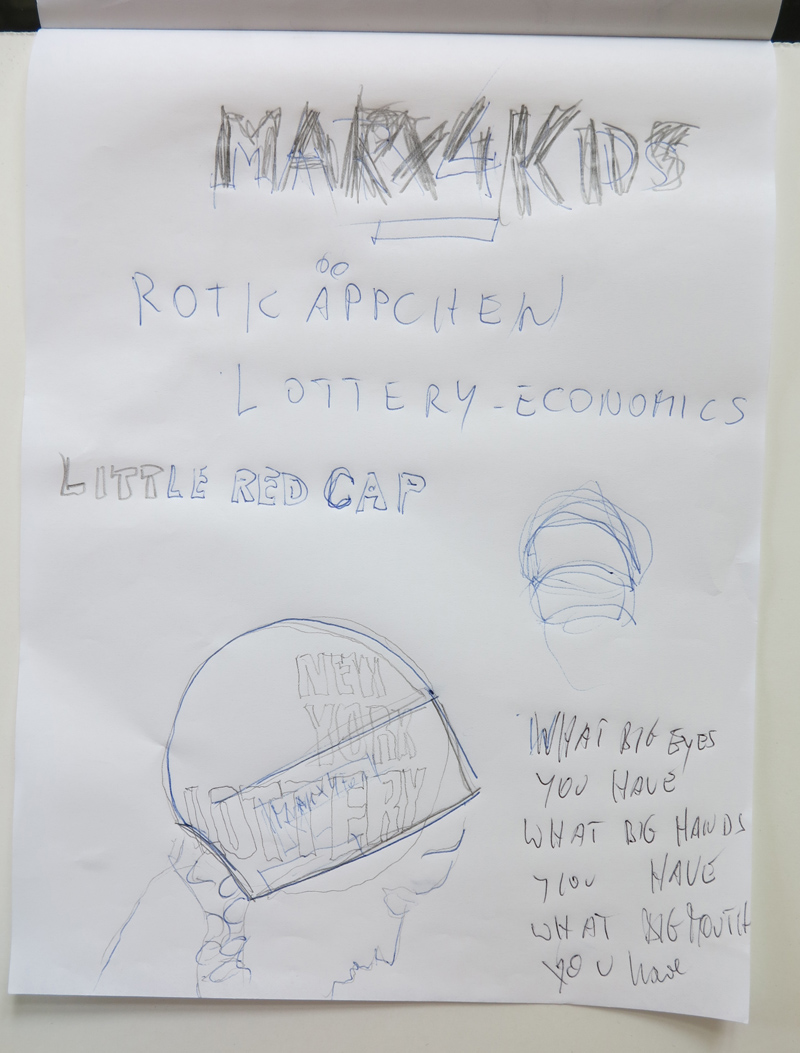 MARX4KIDS
ROTKÄPPCHEN
LOTTERY-ECONOMICS
LITTLE RED CAP
NEW
YORK
LOTTERY
WHAT BIG EYES
YOU HAVE
WHAT BIG HANDS
YOU HAVE
WHAT BIG MOUTH
YOU have